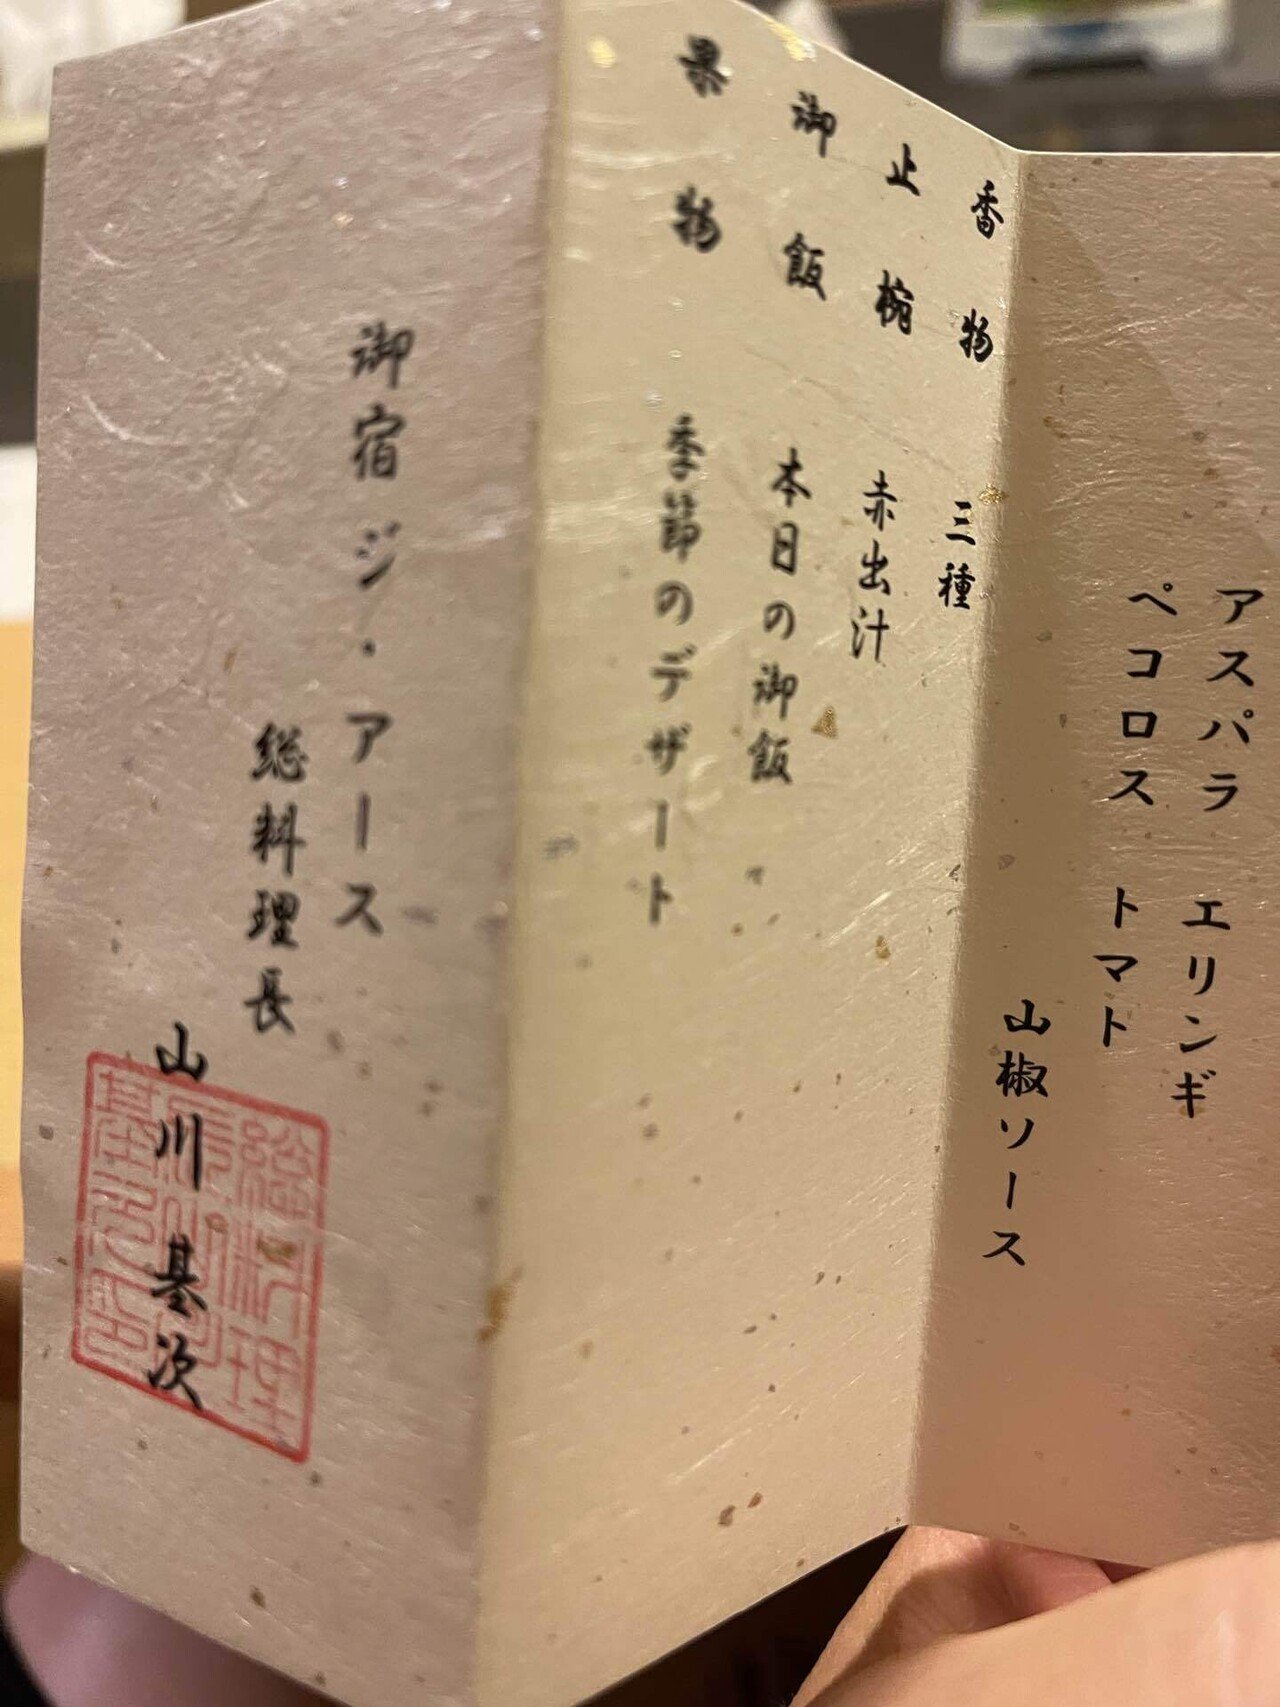 アスパラ エリンギ
ペコロス トマト
山椒ソース
香物 三種
止椀 赤出汁
御飯 本日の御飯
果物 季節のデザート
御宿 ジ・アース
総料理長
山川 基次
総料理
長山川
基次印